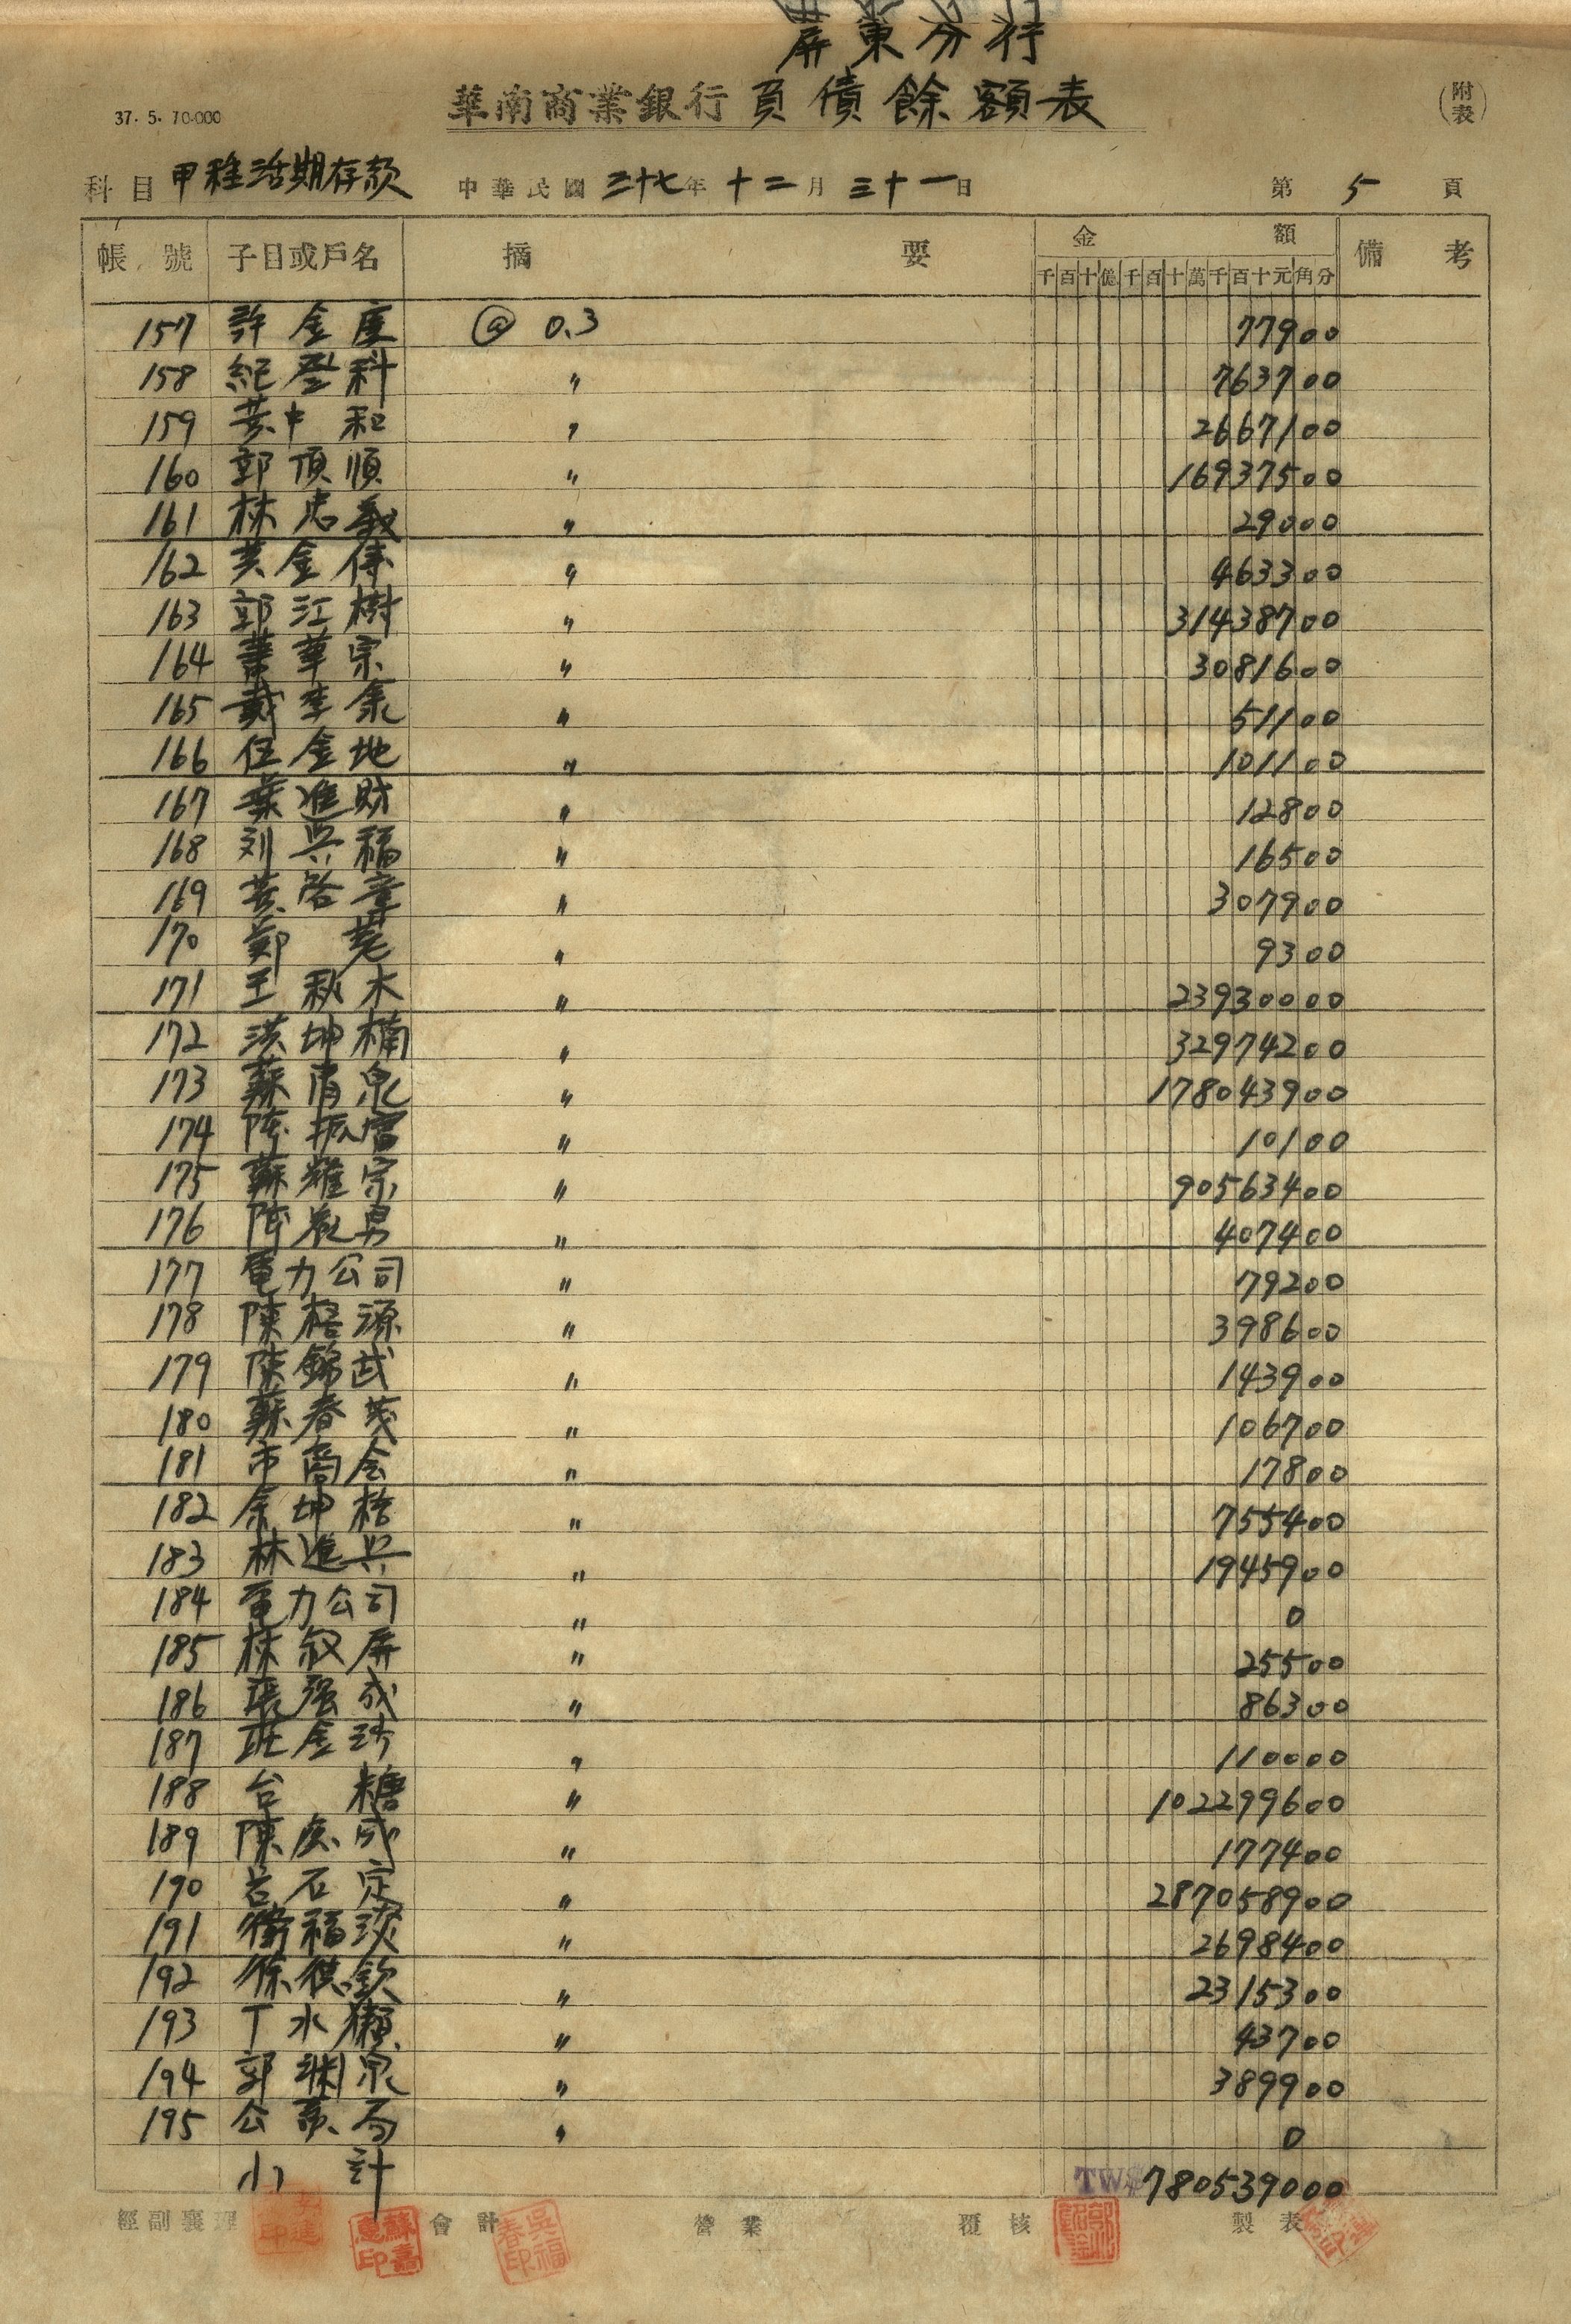 屏東分行
37.5.10.000
華南商業銀行負債餘額表
(附表)
科目 甲種活期存款 中華民國 三十七年 十二月 三十一日 第 5 頁
帳號 子目或戶名 摘要 金額 備考
千百十億千百十萬千百十元角分
157 許金度 @ 0.3 77900
158 紀登科 〃 763700
159 黃中和 〃 2667100
160 郭頂順 〃 16937500
161 林忠義 〃 29000
162 黃金傳 〃 463300
163 郭江樹 〃 31438700
164 葉華宗 〃 3081600
165 戴李 〃 51100
166 伍金地 〃 101100
167 葉進財 〃 12800
168 刘興福 〃 16500
169 黃啓章 〃 307900
170 鄭 〃 9300
171 王秋木 〃 23930000
172 洪坤楠 〃 32974200
173 蘇清泉 〃 178043900
174 陳振雷 〃 10100
175 蘇耀宗 〃 90563400
176 陳 勇 〃 407400
177 電力公司 〃 79200
178 陳格源 〃 398600
179 陳錦武 〃 143900
180 蘇春茂 〃 106700
181 市商会 〃 17800
182 余坤梧 〃 755400
183 林進興 〃 1945900
184 電力公司 〃 0
185 林叙屏 〃 25500
186 張强成 〃 86300
187 莊金珍 〃 110000
188 台糖 〃 102299600
189 陳庚成 〃 177400
190 石定 〃 287058900
191 福 〃 2698400
192 徐德欽 〃 2315300
193 丁水獺 〃 43700
194 郭淵泉 〃 389900
195 公賣局 〃 0
小計 TW$780539000
經副襄理 會計 營業 覆核 製表
蘇嘉惠印
吳福春印